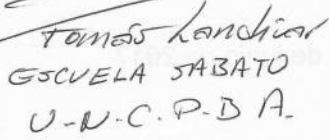 Tomás Landívar
ESCUELA SABATO
U.N.C.P.B A.